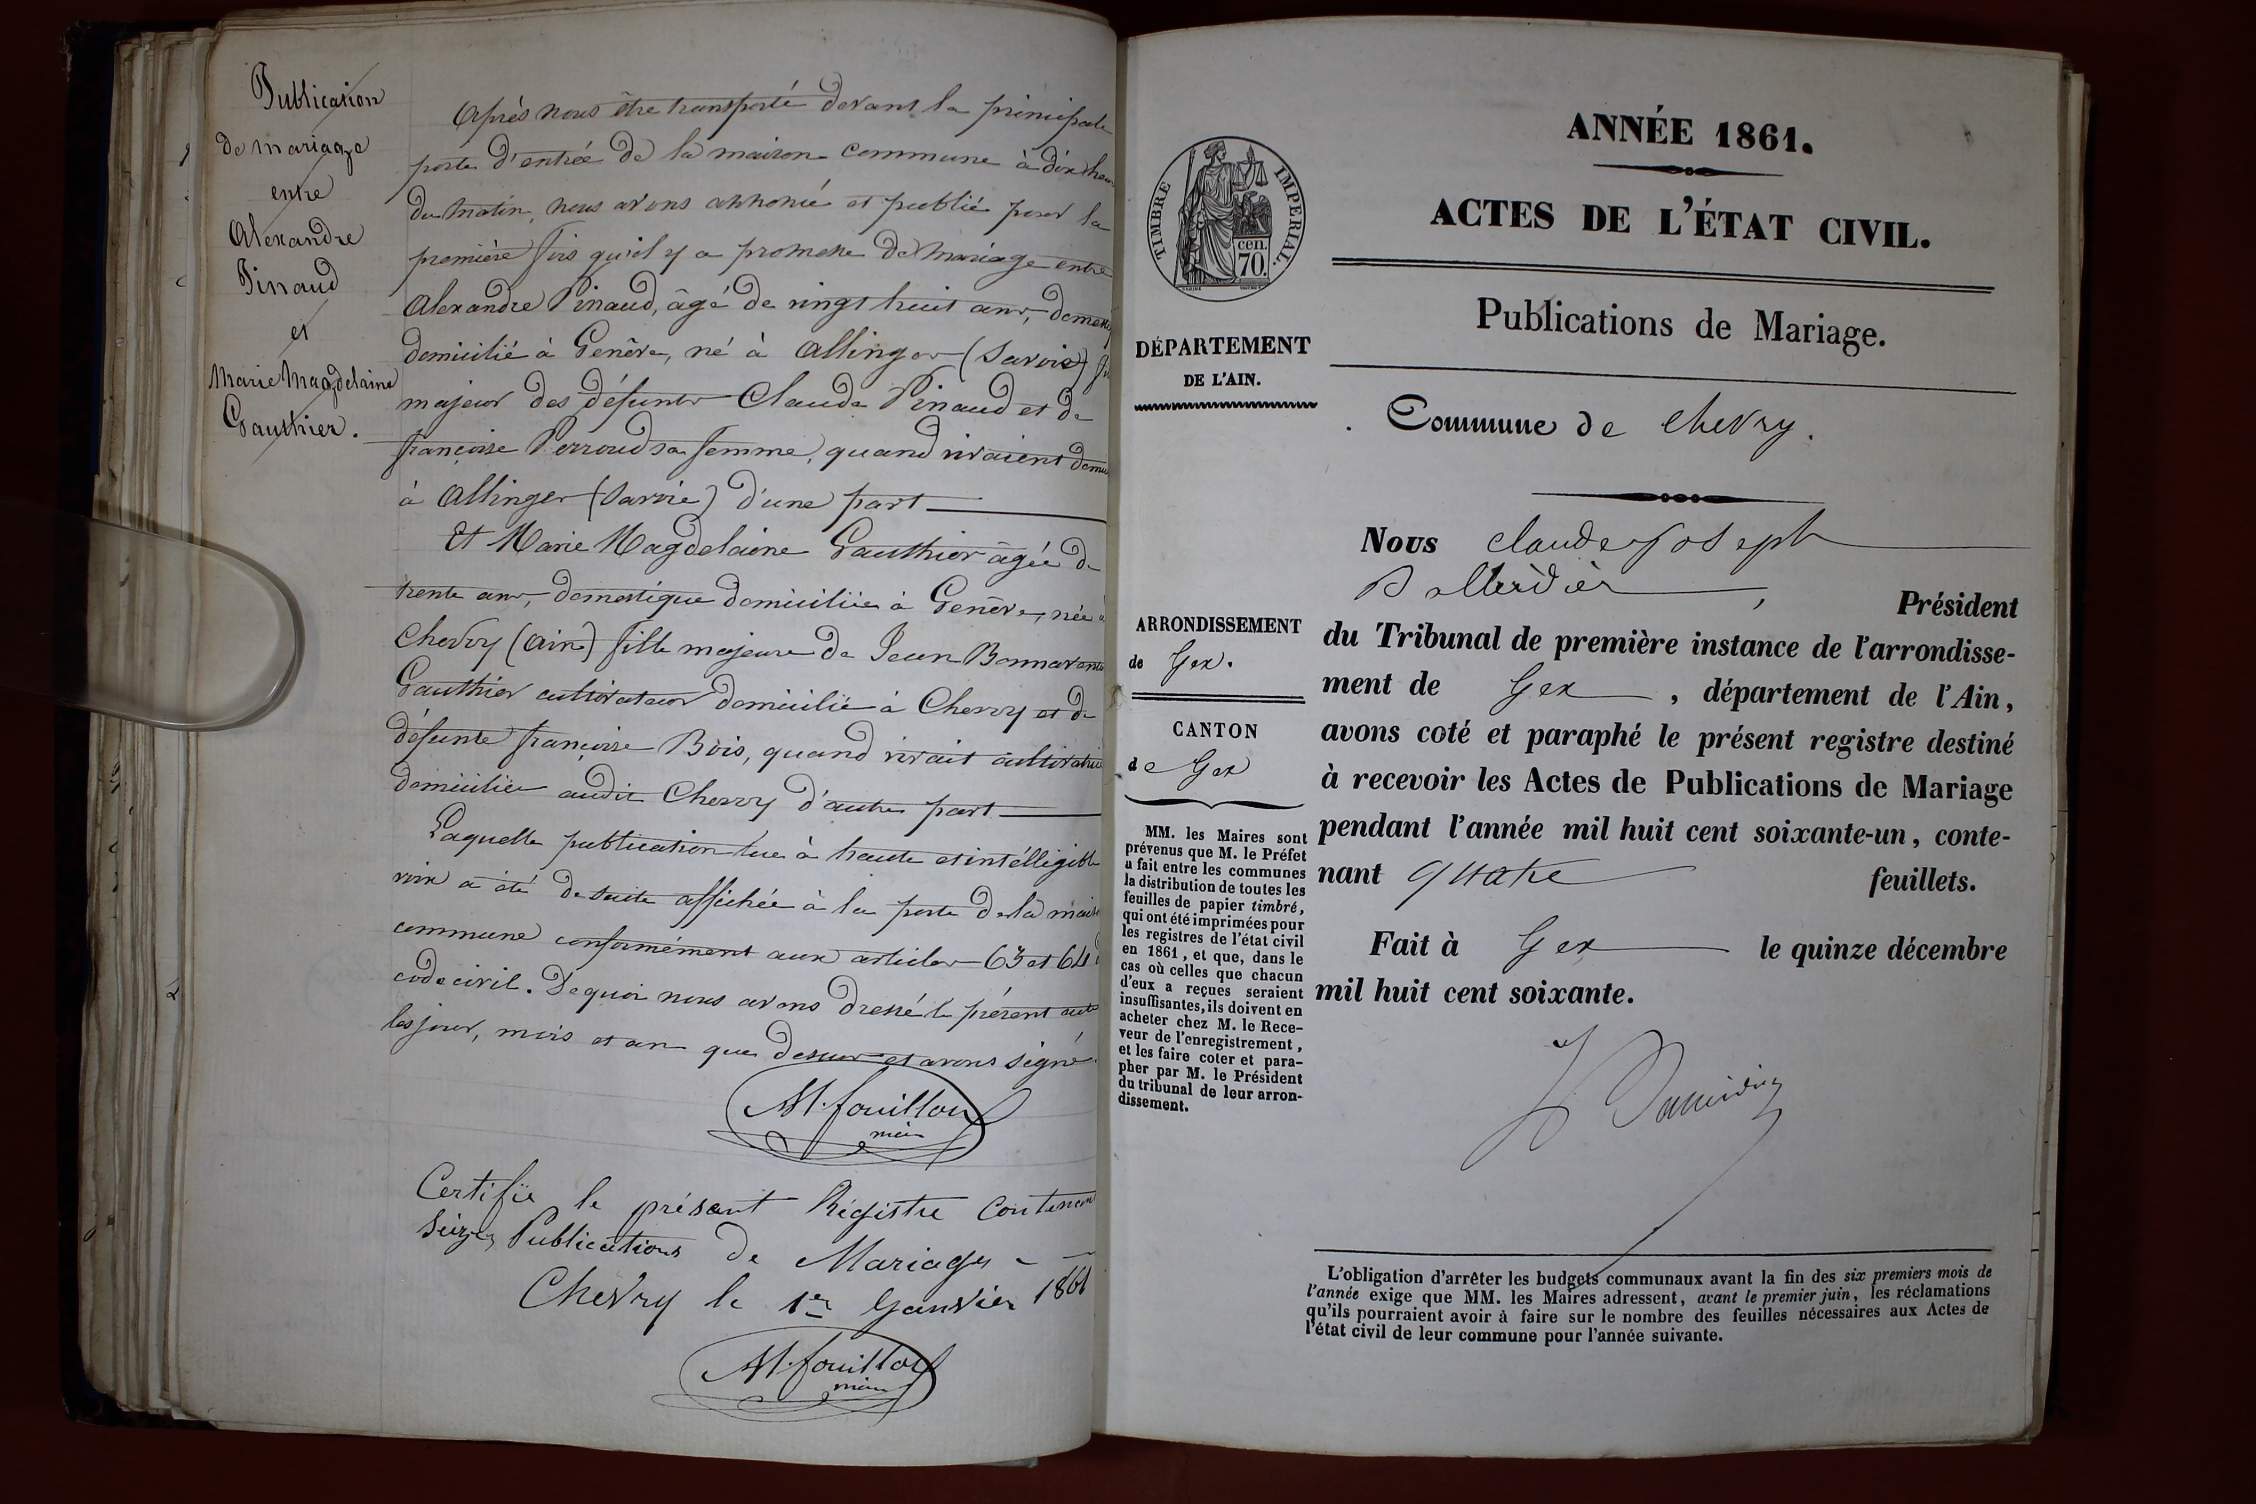 Publication
de mariage
entre
Alexandre
Pinaud
et
Marie Magdelaine
Gauthier.
Après nous être transporté devant la principale
porte d'entrée de la maison commune à dix heu
du matin, nous avons annoncé et publié pour la
première fois qu'il y a promesse de mariage entre
Alexandre Pinaud, âgé de vingt huit ans,
domicilié à Genève, né à Allinger (Savoie)
majeur des défunts Claude Pinaud et de
françoise Perroud sa femme, quand vivaient
à Allinger (Savoie) d'une part
Et Marie Magdelaine Gauthier âgée de
trente ans, domestique domiciliée à Genève, née à
Chevry (Ain) fille majeure de Jean Bonnavent
Gauthier cultivateur domicilié à Chevry et de
défunte françoise Bois, quand vivait cultivatrice
domiciliée audit Chevry d'autre part
Laquelle publication lue à haute et intélligible
voix a été de suite affichée à la porte de la mais
commune conformément aux articles 63 et 64 d
code civil. De quoi nous avons dressé le présent acte
les jour, mois et an que dessus et avons signé.
M. fouilloux
maire
Certifie le présent Régistre Contenant
Seize Publications de Mariages
Chevry le 1er Janvier 1861
M. fouilloux
maire
ANNÉE 1861.
ACTES DE L'ÉTAT CIVIL.
Publications de Mariage.
TIMBRE IMPERIAL.
cen.
70.
DÉPARTEMENT
DE L'AIN.
Commune de Chevry.
ARRONDISSEMENT
de Gex.
CANTON
de Gex
MM. les Maires sont
prévenus que M. le Préfet
a fait entre les communes
la distribution de toutes les
feuilles de papier timbré,
qui ont été imprimées pour
les registres de l'état civil
en 1861, et que, dans le
cas où celles que chacun
d'eux a reçues seraient
insuffisantes, ils doivent en
acheter chez M. le Rece-
veur de l'enregistrement,
et les faire coter et para-
pher par M. le Président
du tribunal de leur arron-
dissement.
Nous Claude Joseph
, Président
du Tribunal de première instance de l'arrondisse-
ment de Gex, département de l'Ain,
avons coté et paraphé le présent registre destiné
à recevoir les Actes de Publications de Mariage
pendant l'année mil huit cent soixante-un, conte-
nant quatre feuillets.
Fait à Gex le quinze décembre
mil huit cent soixante.
L'obligation d'arrêter les budgets communaux avant la fin des six premiers mois de
l'année exige que MM. les Maires adressent, avant le premier juin, les réclamations
qu'ils pourraient avoir à faire sur le nombre des feuilles nécessaires aux Actes de
l'état civil de leur commune pour l'année suivante.